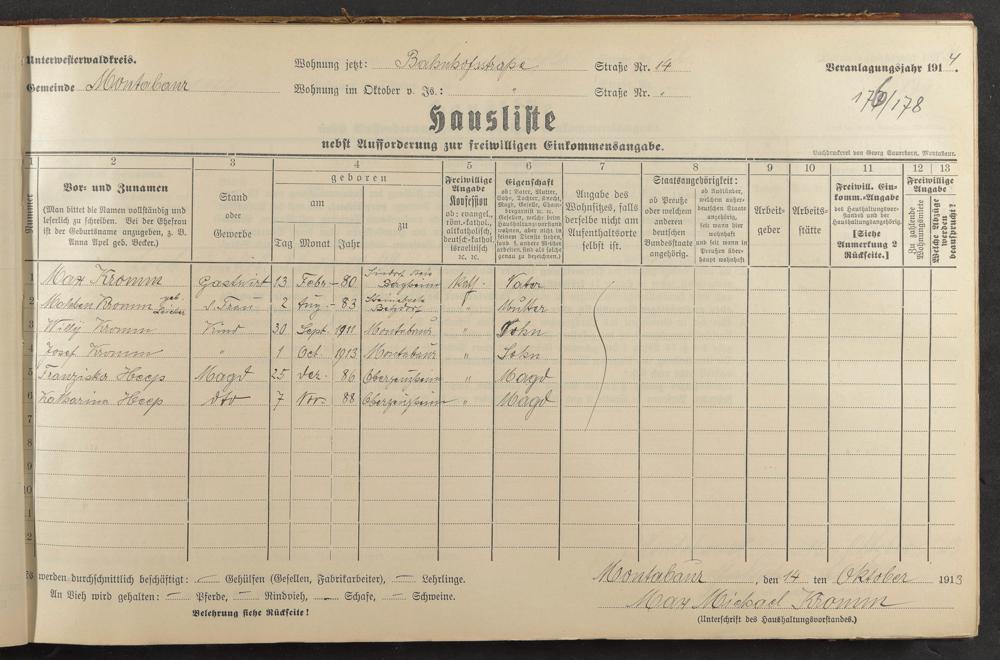 Unterwesterwaldkreis.
Wohnung jetzt: Bahnhofstraße Straße Nr. 14
Veranlagungsjahr 1914.
Gemeinde Montabaur
Wohnung im Oktober v. Js.: " Straße Nr. "
176/178
Hausliste
nebst Aufforderung zur freiwilligen Einkommensangabe.
Buchdruckerei von Georg Sauerborn, Montabaur.
1 2 3 4 5 6 7 8 9 10 11 12 13
Nummer
Vor- und Zunamen
(Man bittet die Namen vollständig und
leserlich zu schreiben. Bei der Ehefrau
ist der Geburtsname anzugeben, z. B.
Anna Apel geb. Becker.)
Stand
oder
Gewerbe
geboren
am
zu
Tag Monat Jahr
Freiwillige
Angabe
Konfession
ob: evangel.,
röm.-kathol.,
altkatholisch,
deutsch-kathol.
israelitisch
ꝛc. ꝛc.
Eigenschaft
ob: Vater, Mutter,
Sohn, Tochter, Knecht,
Magd, Geselle, Cham-
Angabe des
Wohnsitzes, falls
derselbe nicht am
Aufenthaltsorte
selbst ist.
Staatsangehörigkeit:
ob Preuße
oder welchem
anderen
deutschen
Bundesstaate
angehörig.
ob Ausländer,
welchem außer-
deutschen Staate
angehörig,
seit wann hier
wohnhaft
und seit wann in
Preußen über-
haupt wohnhaft
Arbeit-
geber
Arbeits-
stätte
Freiwill. Ein-
komm.-Angabe
des Haushaltungsvor-
standes und der
Haushaltungsangehörig.
[Siehe
Anmerkung 2
Rückseite.]
Freiwillige
Angabe
Zu zahlende
Wohnungsmiete
Welche Abzüge
werden
beansprucht?
1 Max Kromm Gastwirt 13 Febr. 80 Kath. Vater
2 Kromm geb. s. Frau 2 Aug. 83 " Mutter
3 Willy Kromm Kind 30 Sept. 1911 Montabaur " Sohn
4 Josef Kromm " 1 Oct. 1913 Montabaur " Sohn
5 Franziska Heep Magd 25 Dez. 86 " Magd
6 Katharina Heep dto 7 Nov. 88 " Magd
7
8
9
10
1
2
Es werden durchschnittlich beschäftigt: — Gehülfen (Gesellen, Fabrikarbeiter), — Lehrlinge.
An Vieh wird gehalten: — Pferde, — Rindvieh, — Schafe, — Schweine.
Belehrung siehe Rückseite!
Montabaur, den 14 ten Oktober 1913
Max Michael Kromm
(Unterschrift des Haushaltungsvorstandes.)